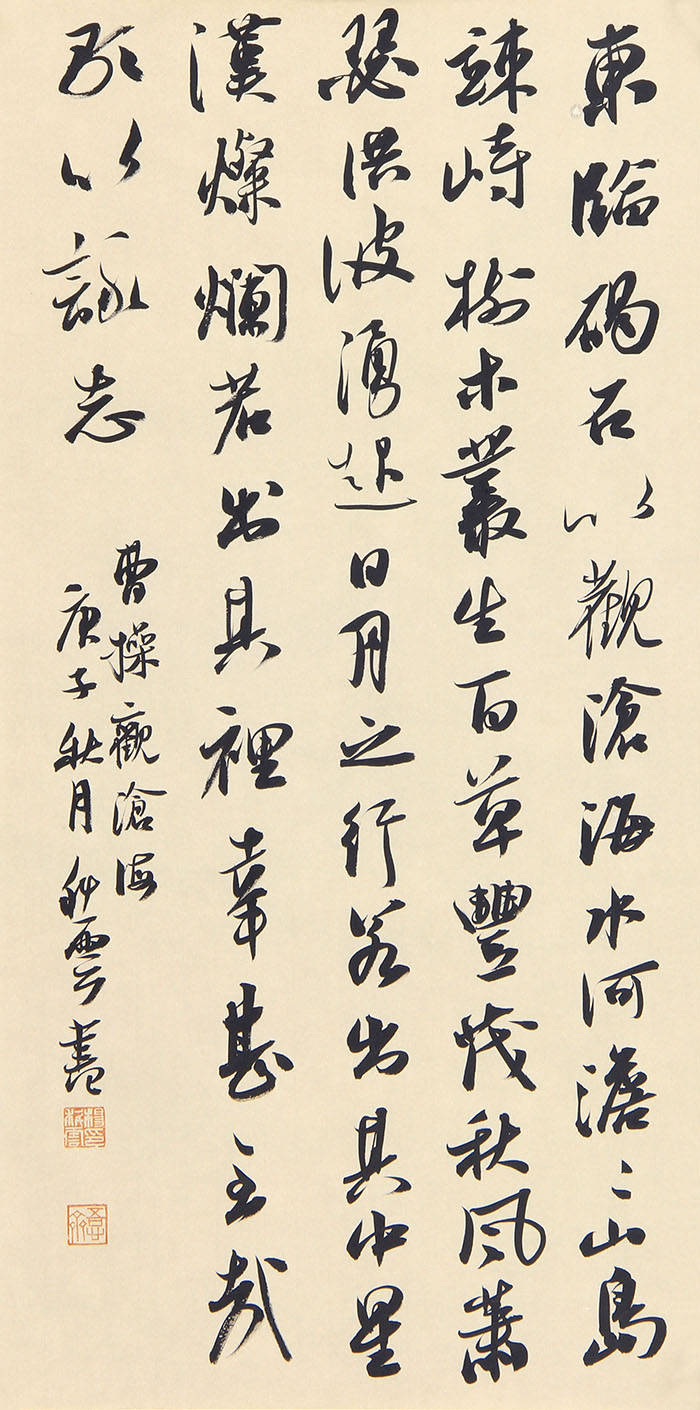 東臨碣石以觀滄海水河澹〻山島
竦峙樹木叢生百草豐茂秋風蕭
瑟洪波湧起日月之行若出其中星
漢燦爛若出其裡幸甚至哉
歌以詠志
曹操觀滄海
庚子秋月科雲書